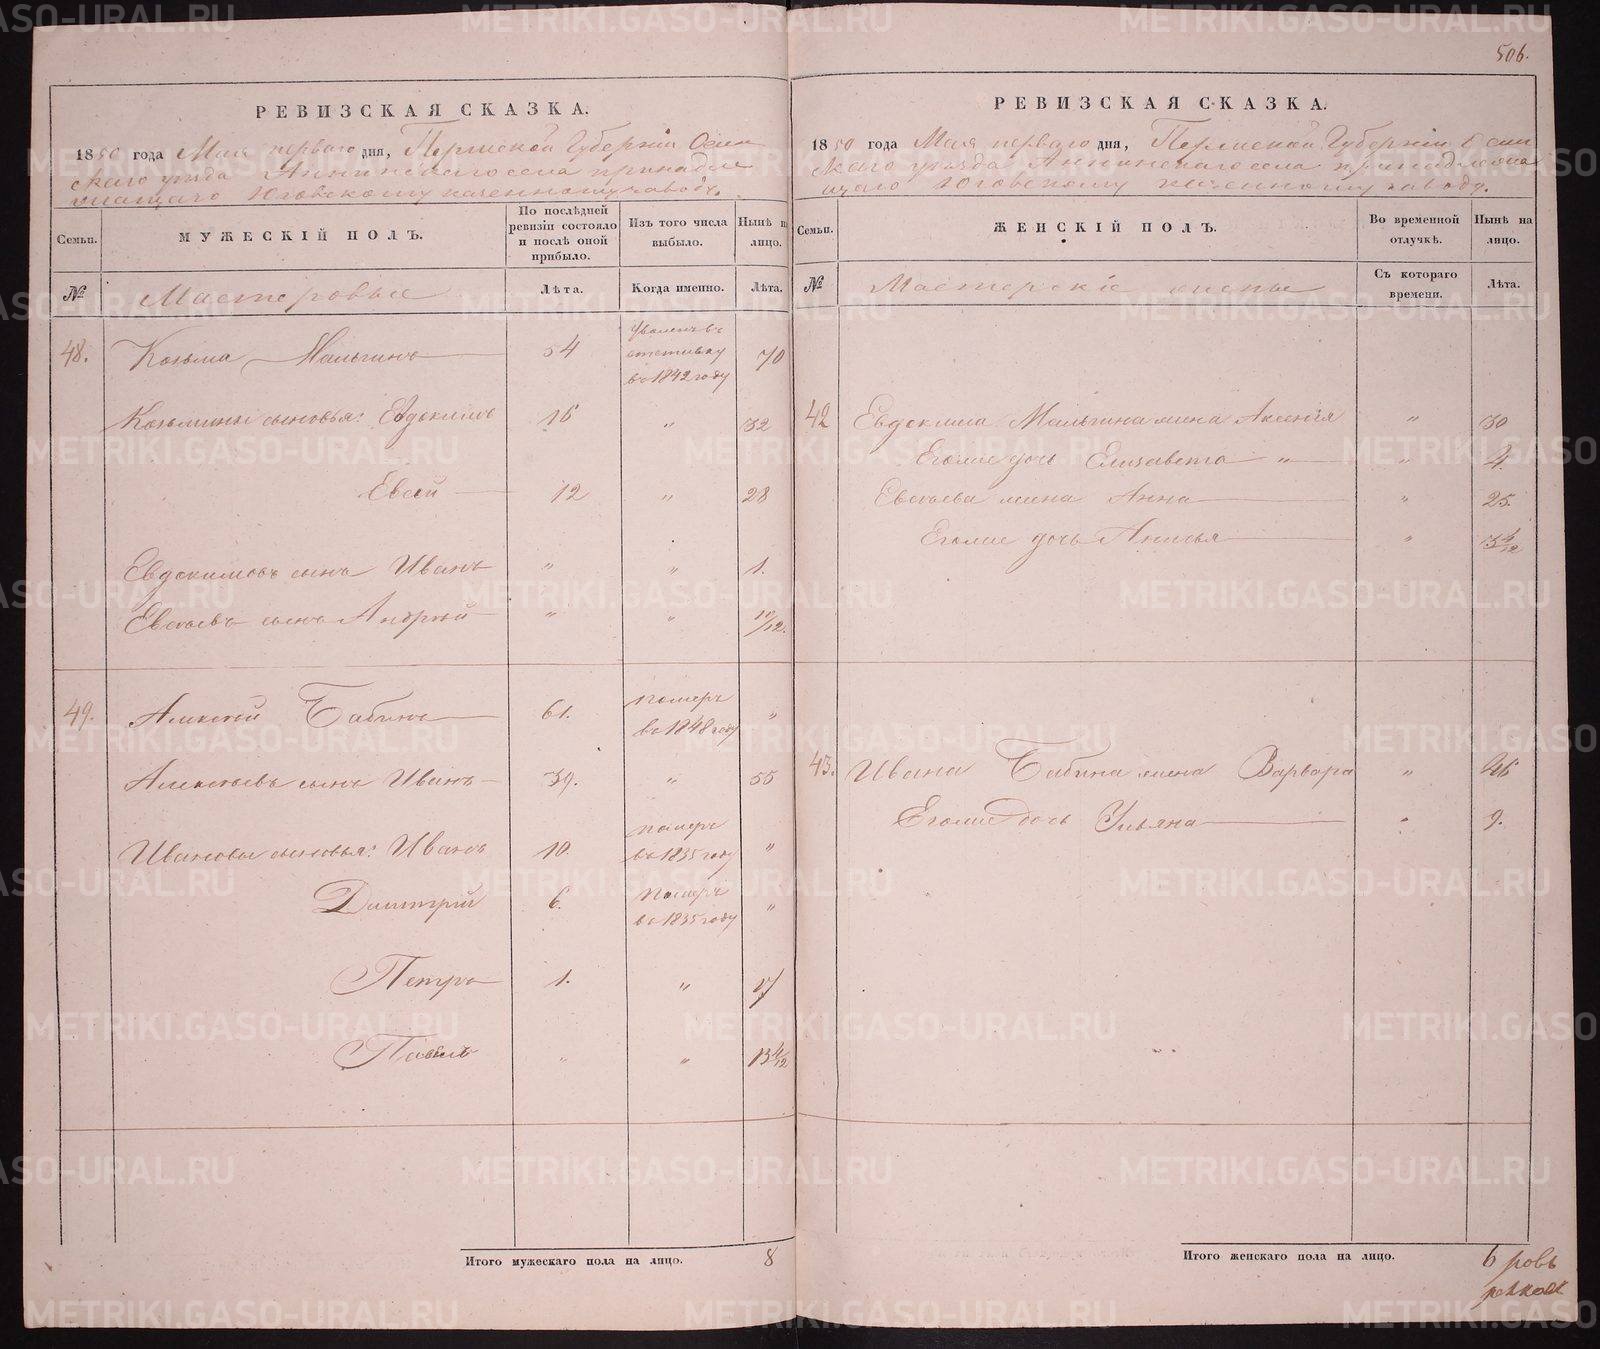 506.
РЕВИЗСКАЯ СКАЗКА.
1850 года Мая перваго дня, Пермской Губернiи Осин
скаго уезда Аннинскаго села принадле
жащаго Юговскому казенному заводу.
Семьи.
МУЖЕСКIЙ ПОЛЪ.
По послѣдней ревизiи состояло и послѣ оной прибыло.
Изъ того числа выбыло.
Нынѣ на лицо.
№
Мастеровые
Лѣта.
Когда именно.
Лѣта.
48. Козьма Мальгинъ 54 Уволенъ въ отставку въ 1842 году 70
Козьмины сыновья: Евдокимъ 16 " 32
Евсей 12 " 28
Евдокимовъ сынъ Иванъ " " 1.
Евсѣевъ сынъ Андрей " " 11/12.
49. Алексѣй Бабинъ 61. померъ въ 1848 году "
Алексѣевъ сынъ Иванъ 39. " 55
Ивановы сыновья: Иванъ 10. померъ въ 1835 году "
Дмитрiй 6. померъ въ 1835 году "
Петръ 1. " 17
Павелъ " " 13 4/12
Итого мужескаго пола на лицо. 8
РЕВИЗСКАЯ СКАЗКА.
1850 года Мая перваго дня, Пермской Губернiи Осин
скаго уезда Аннинскаго села принадлежа
щаго Юговскому казенному заводу.
Семьи.
ЖЕНСКIЙ ПОЛЪ.
Во временной отлучкѣ.
Нынѣ на лицо.
№
Мастерскiе жены
Съ котораго времени.
Лѣта.
42 Евдокима Мальгина жена Аксенiя " 30
Егоже дочь Елизавета " " 4.
Евсѣева жена Анна " 25.
Егоже дочь Анисья " 3 4/12
43. Ивана Бабина жена Варвара " 46
Егоже дочь Ульяна " 9.
Итого женскаго пола на лицо. 6